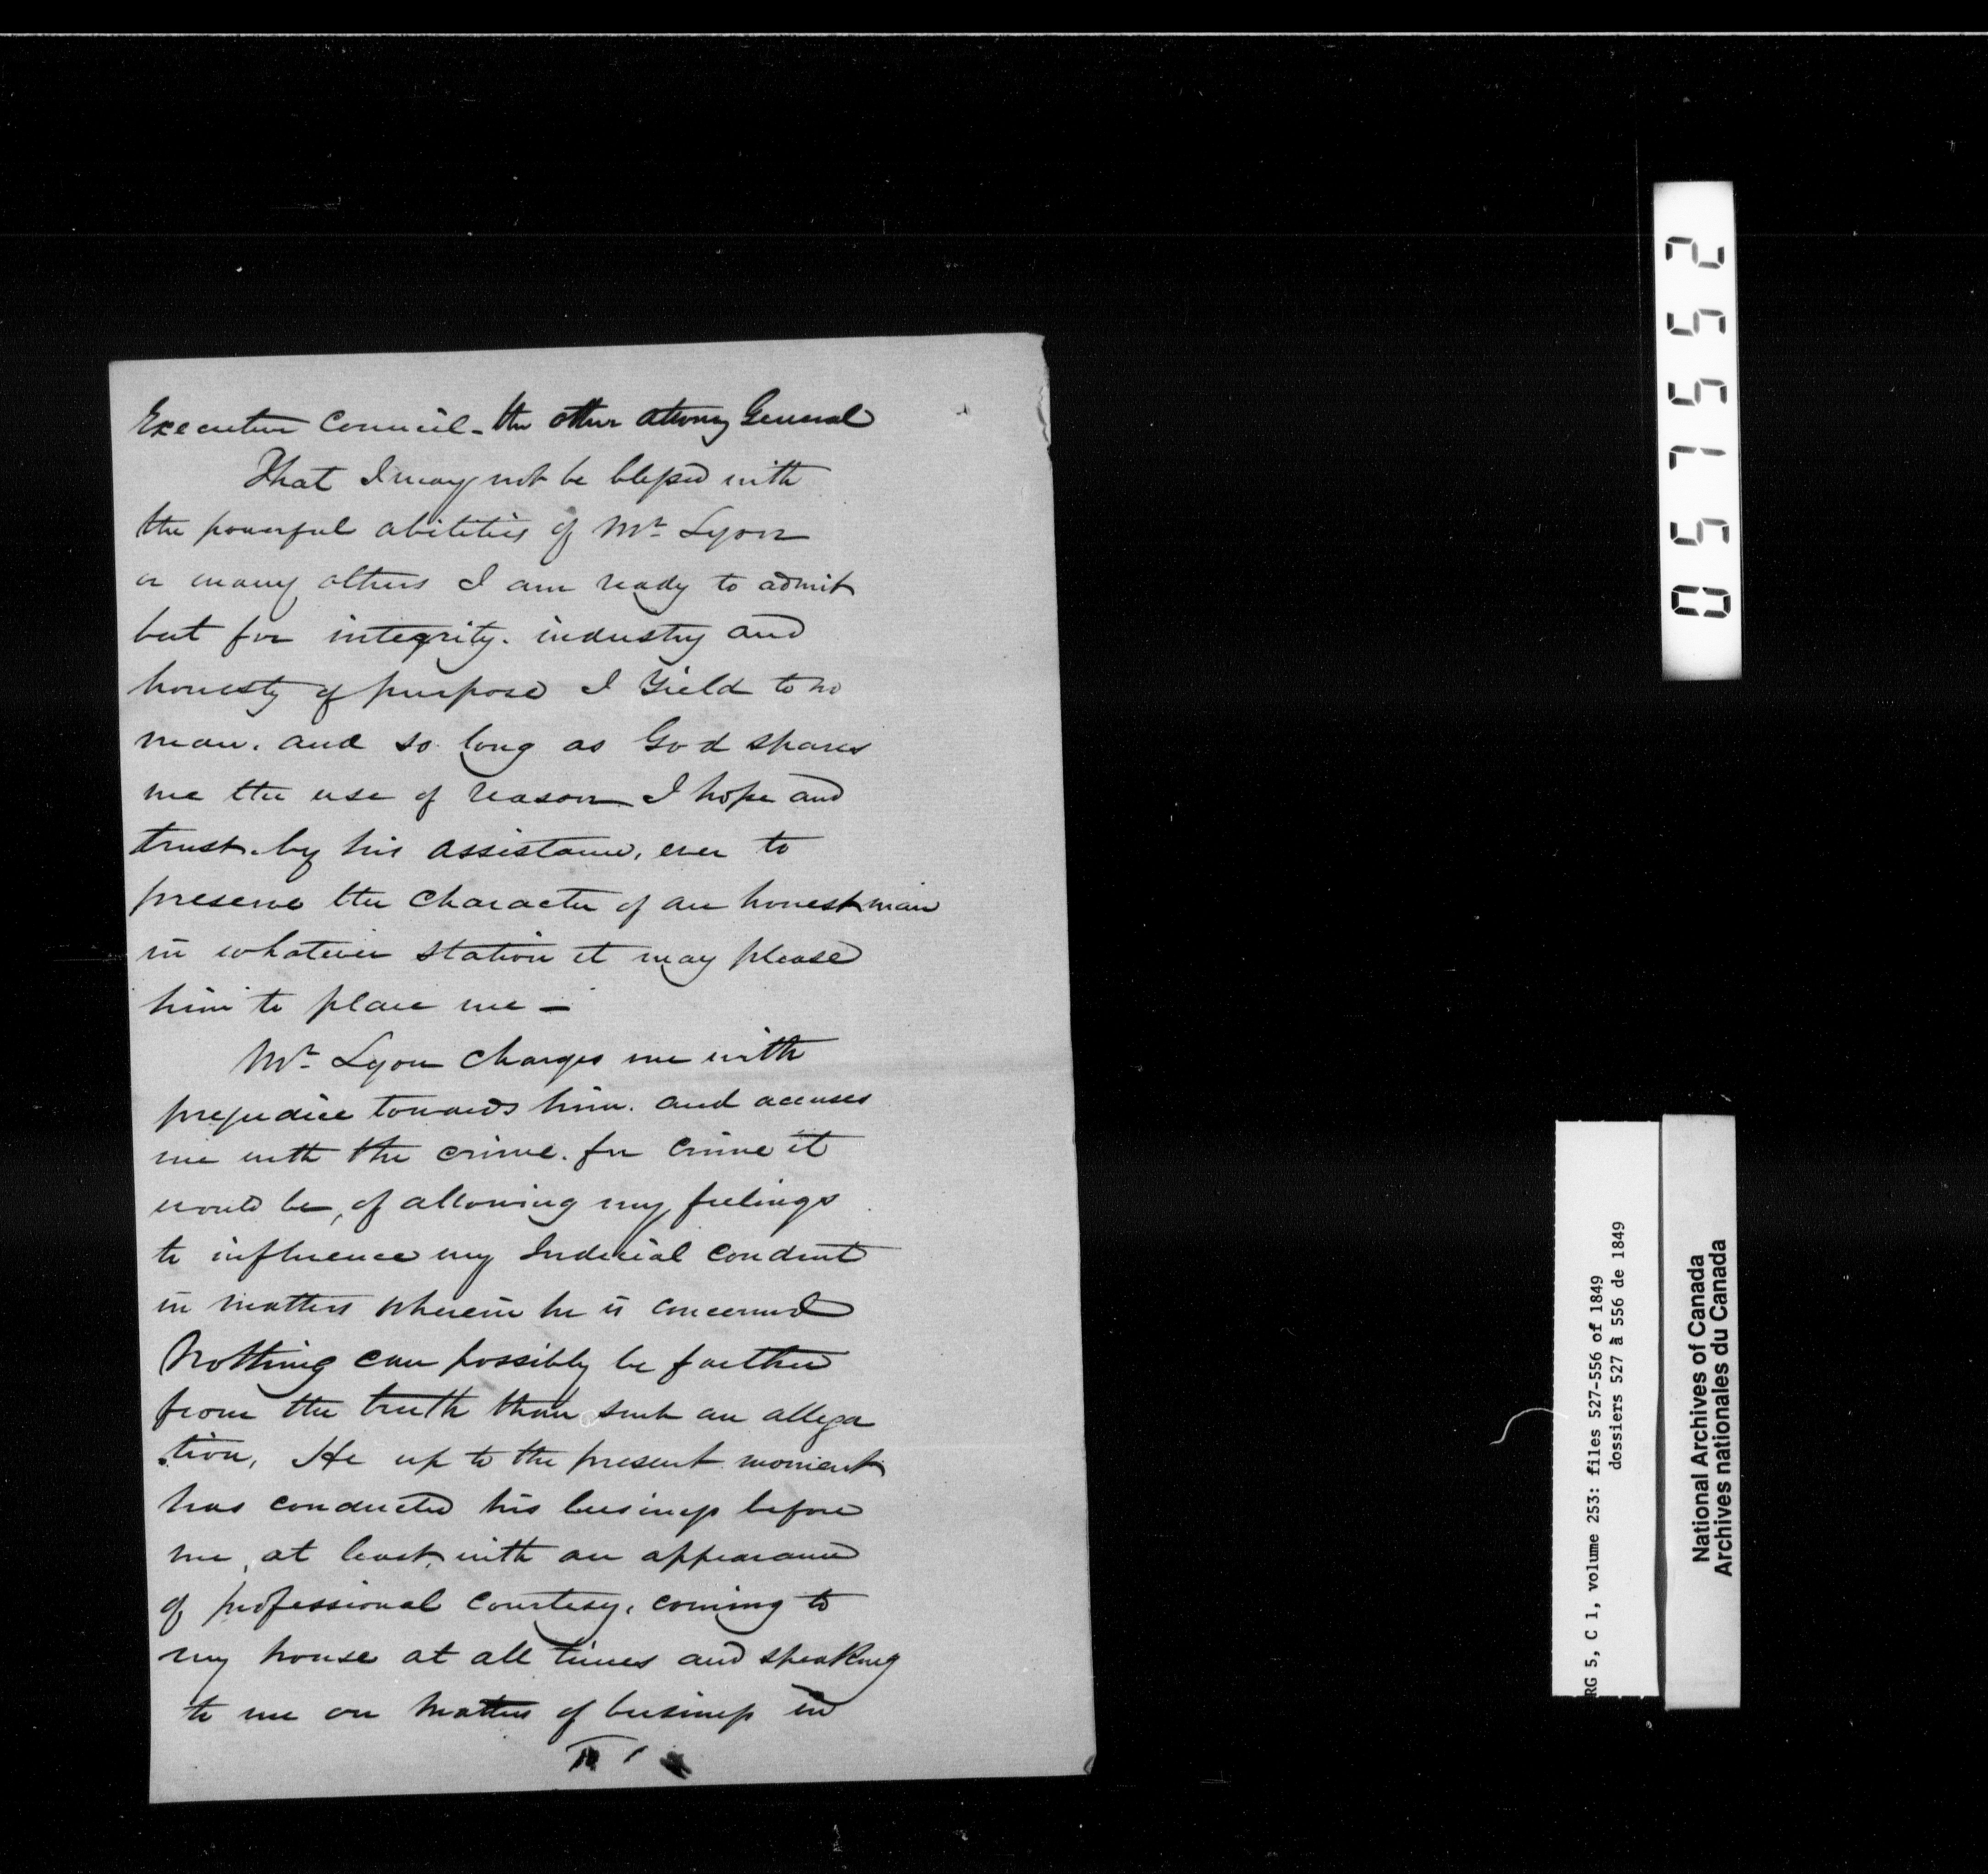 Executive Council - the other Attorney General
That I may not be blessed with
the powerful abilities of Mr Lyon
or many others I am ready to admit
but for integrity. industry and
honesty of purpose I Yield to no
man. and so long as God spares
me the use of reason I hope and
trust. by his assistance, ever to
preserve the Character of an honest man
in whatever station it may please
him to place me -
Mr Lyon Charges me with
prejudice towards him. and accuses
me with the crime. for crime it
would be, of allowing my feelings
to influence my Judicial Conduct
in matters wherein he is concerned
Nothing can possibly be farther
from the truth than such an allega
tion, He up to the present moment
has conducted his business before
me, at least, with an appearance
of professional Courtesy, coming to
my house at all times and speaking
to me on Matters of business in
0571552
RG 5, C 1, volume 253: files 527-556 of 1849
dossiers 527 à 556 de 1849
National Archives of Canada
Archives nationales du Canada